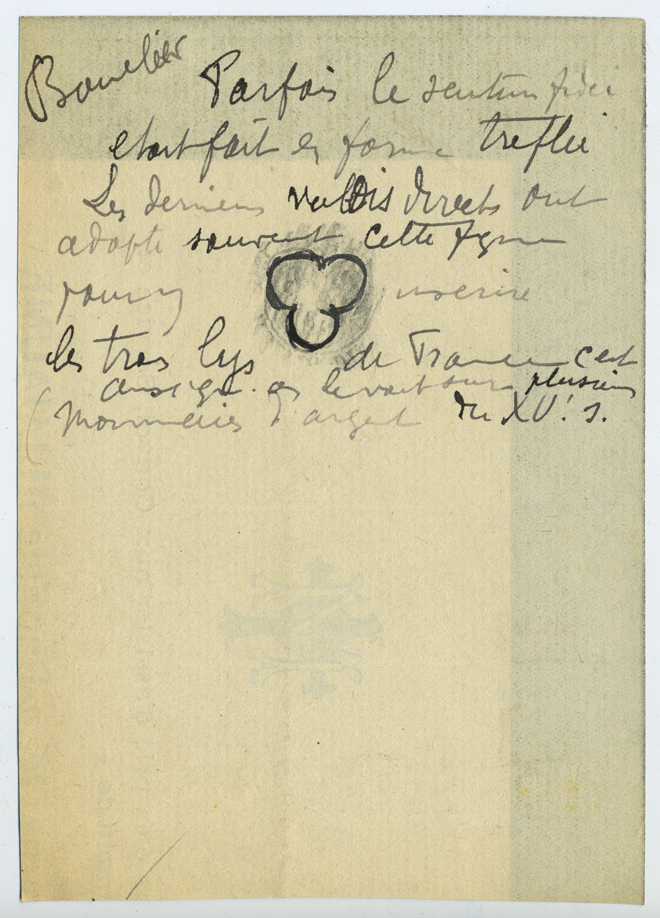 Bouclier
Parfois le scutum fidei
etait fait en forme treflée
Les derniers valois directs ont
adopté souvent cette figure
pour y inscrire
les trois lys de France c'est
ainsi qu'on le voit sur plusieurs
monnaies d'argent du XVe s.